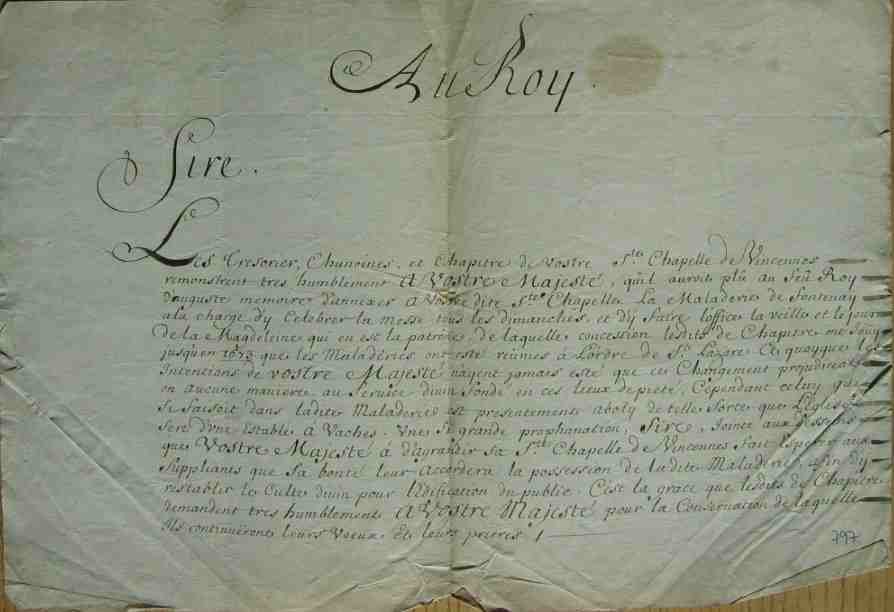 Au Roy.
Sire.
Les Tresorier, Chanoines, et Chapitre de Vostre Ste Chapelle de Vincennes
remonstrent tres humblement A Vostre Majesté, qu'il auroit plû au feu Roy
d'auguste memoire d'annexer a Vostre dite Ste Chapelle La Maladerie de Fontenay
a la charge d'y Celebrer la messe tous les dimanches, et d'y faire l'office la veille et le jour
de la Magdeleine qui en est la patrone, de laquelle concession lesdits de Chapitre ont Jouy
jusqu'en que les Maladeries ont esté reünies à l'ordre de St Lazare. Et quoyque les
Intentions de vostre Majesté n'ayent jamais esté que ce Changement prejudiciast
en aucune maniere au Service divin fondé en ces lieux de pieté, Cependant celuy qui
se faisoit dans ladite Maladerie est presentement aboly de telle sorte que L'Eglise
sert d'une Estable a Vaches. Une si grande prophanation, Sire, Jointe aux desseins
que Vostre Majesté à d'agrandir sa Ste Chapelle de Vincennes fait esperer aux
Suppliants que sa bonté leur accordera la possession de ladite Maladerie, afin d'y
restablir le Culte divin pour l'edification du public. C'est la grace que lesdits de Chapitre
demandent tres humblement A Vostre Majesté pour la Conservation de laquelle
Ils continüeront leurs Voeux Et leurs prieres !
797